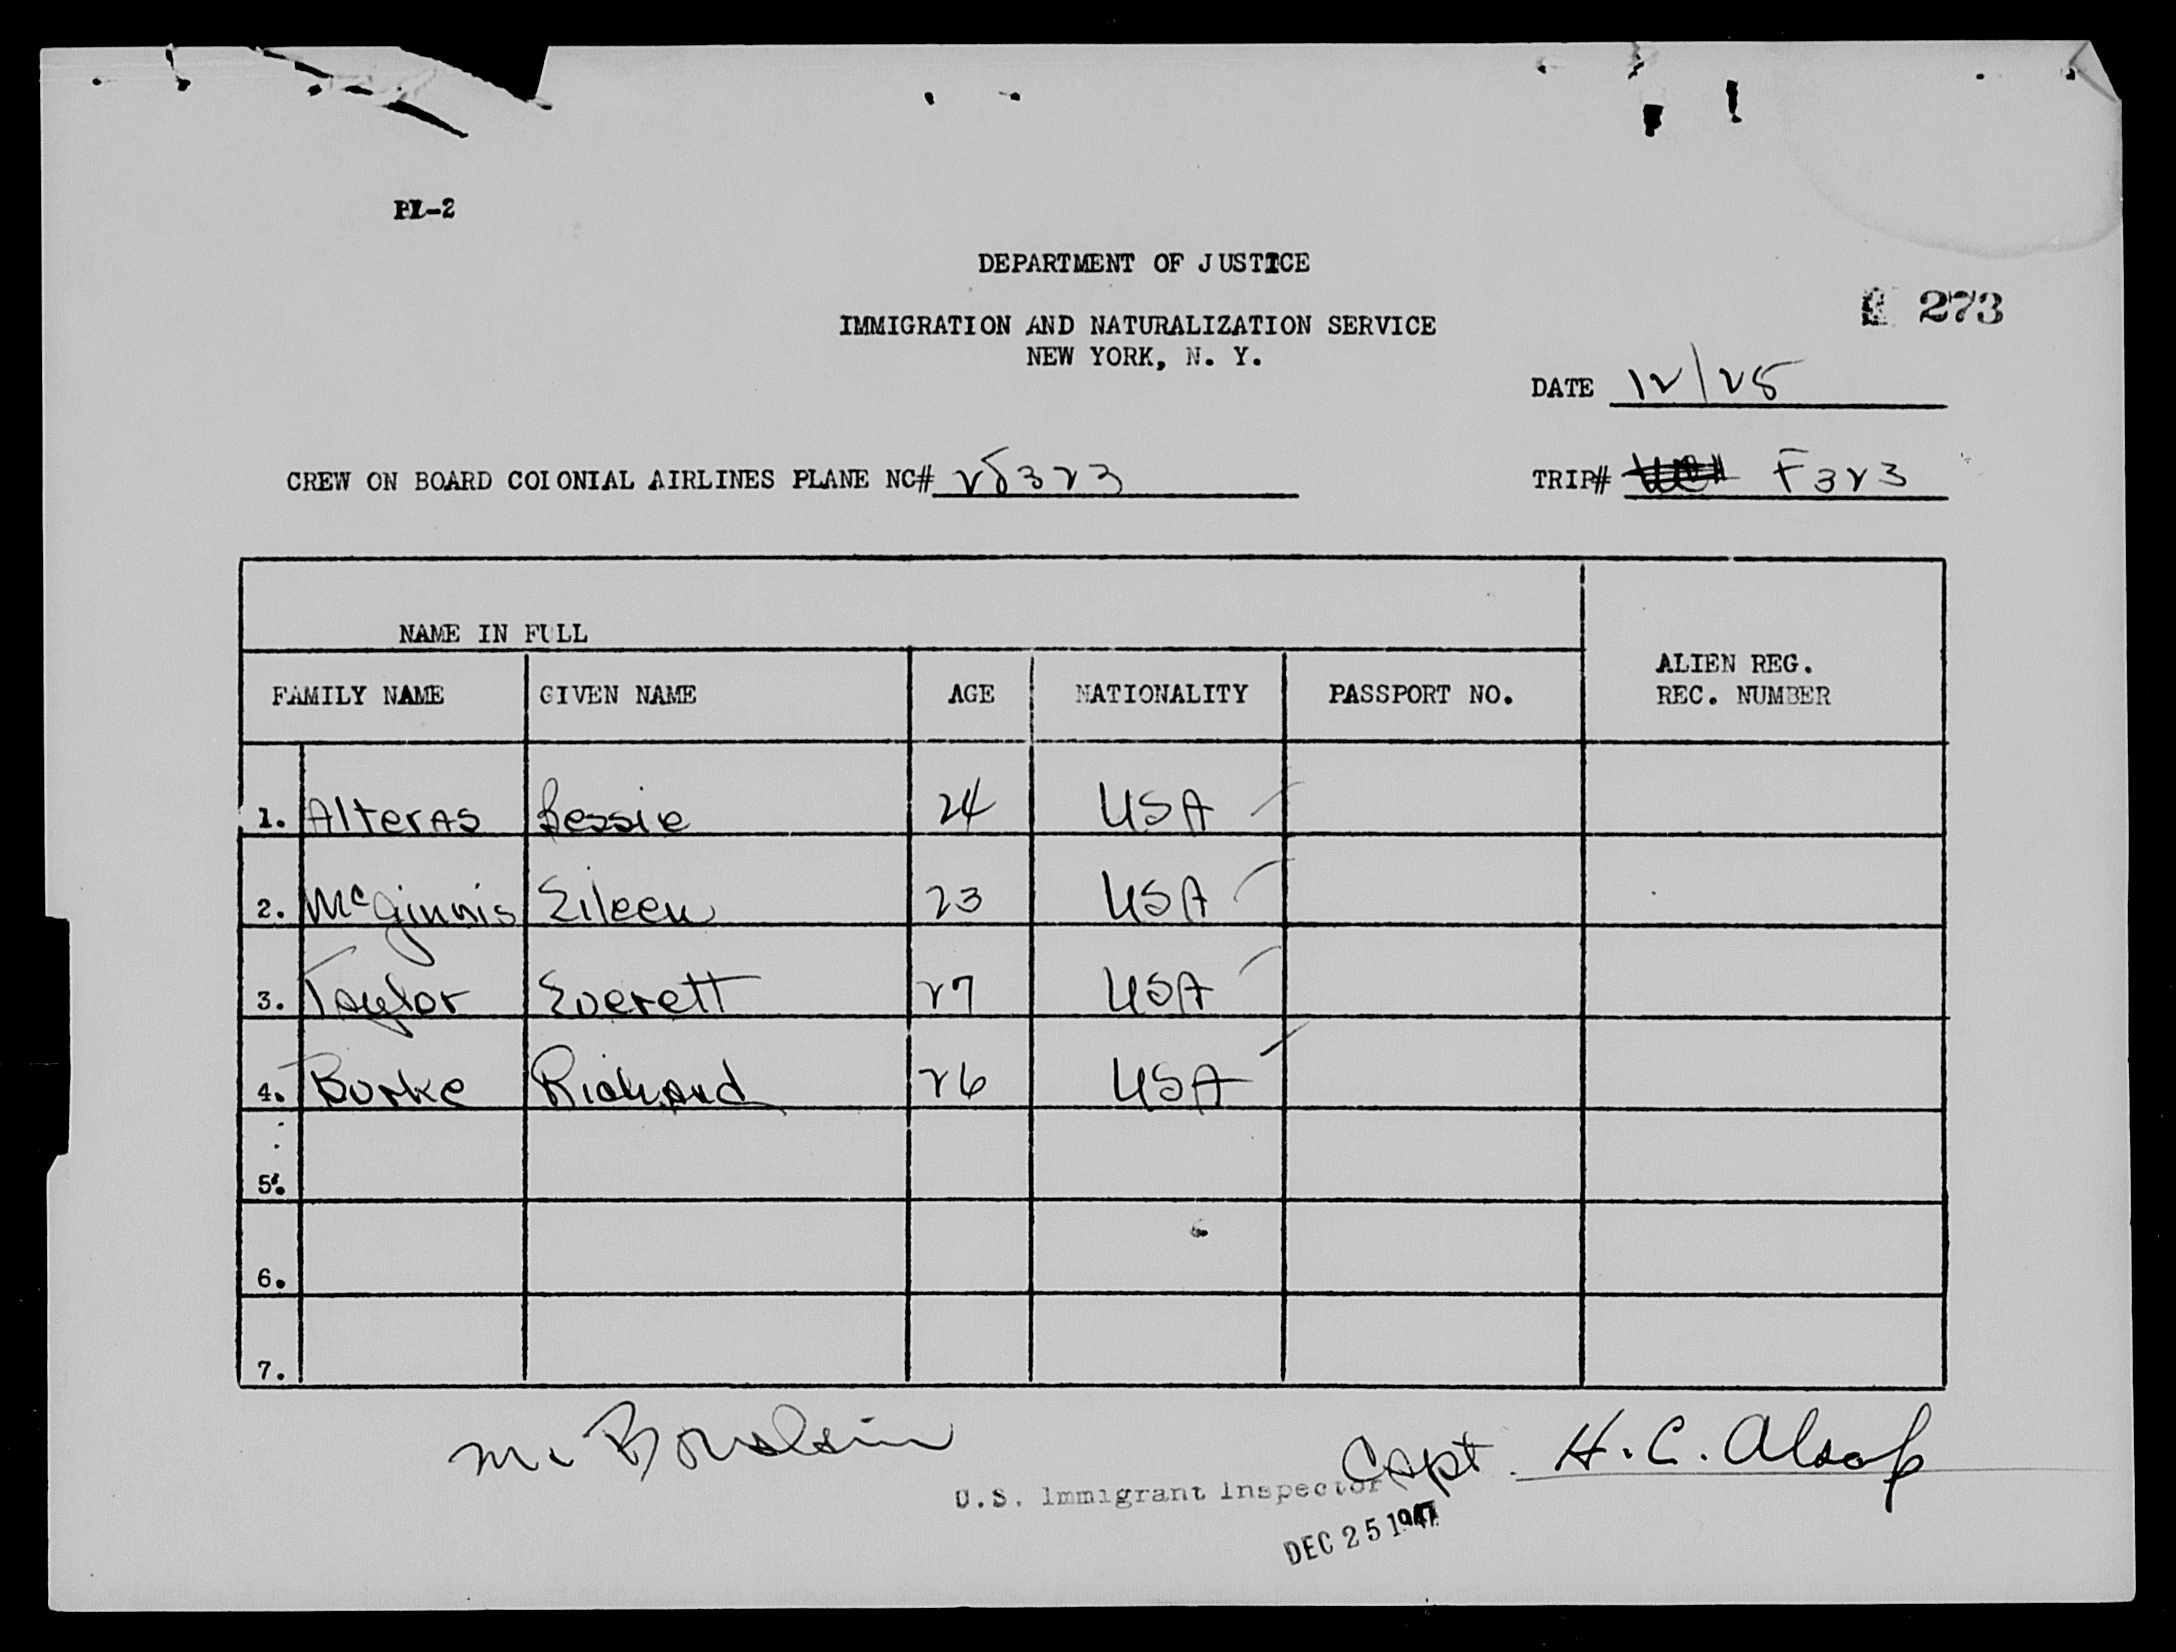 PI-2
DEPARTMENT OF JUSTICE
IMMIGRATION AND NATURALIZATION SERVICE
NEW YORK, N. Y.
273
DATE 12/25
CREW ON BOARD COLONIAL AIRLINES PLANE NC# 25323
TRIP# F323
NAME IN FULL
FAMILY NAME GIVEN NAME AGE NATIONALITY PASSPORT NO. ALIEN REG. REC. NUMBER
1. Alteras Bessie 24 USA
2. McGinnis Eileen 23 USA
3. Taylor Everett 27 USA
4. Burke Richard 26 USA
5.
6.
7.
Capt. H. C. Alsop
U.S. Immigrant Inspector
DEC 25 1947